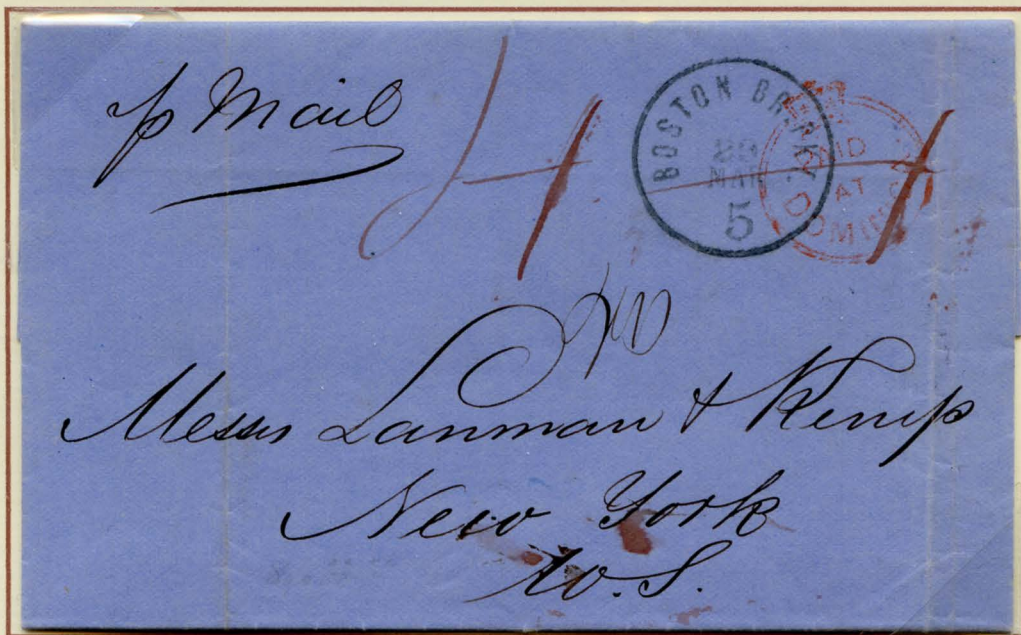 p Mail
BOSTON BR. PK.
28
MAR
5
PAID
AT
DOMINICA
Messrs Lanman & Kemp
New York
U.S.